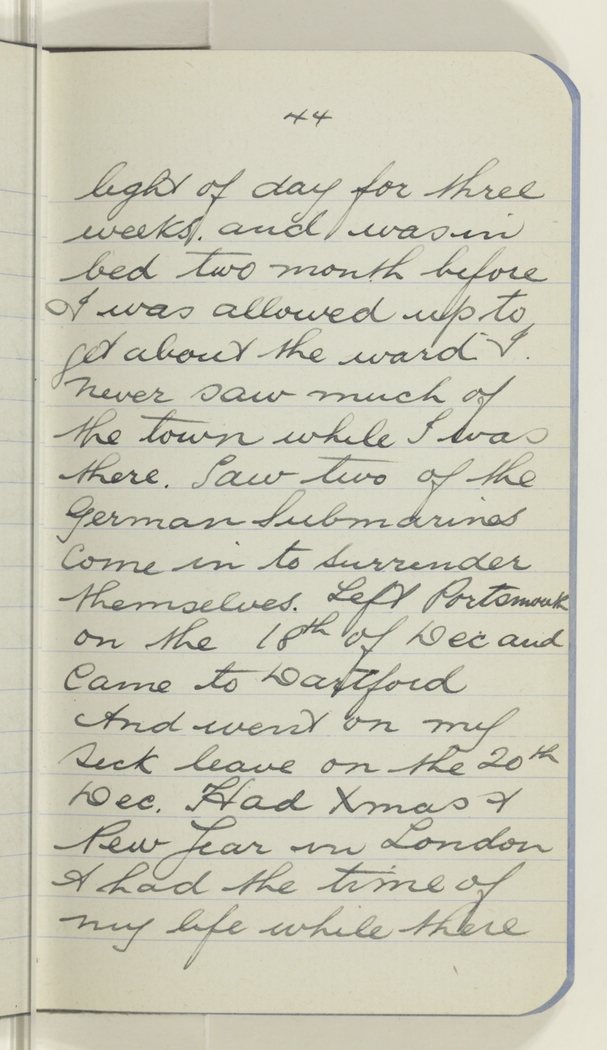 44
light of day for three
weeks. and was in
bed two month before
I was allowed up to
get about the ward I.
never saw much of
the town while I was
there. Saw two of the
German Submarines
Come in to surrender
themselves. Left Portsmouth
on the 18th of Dec and
Came to Dartford
And went on my
Sick leave on the 20th
Dec. Had Xmas &
New Year in London
& had the time of
my life while there